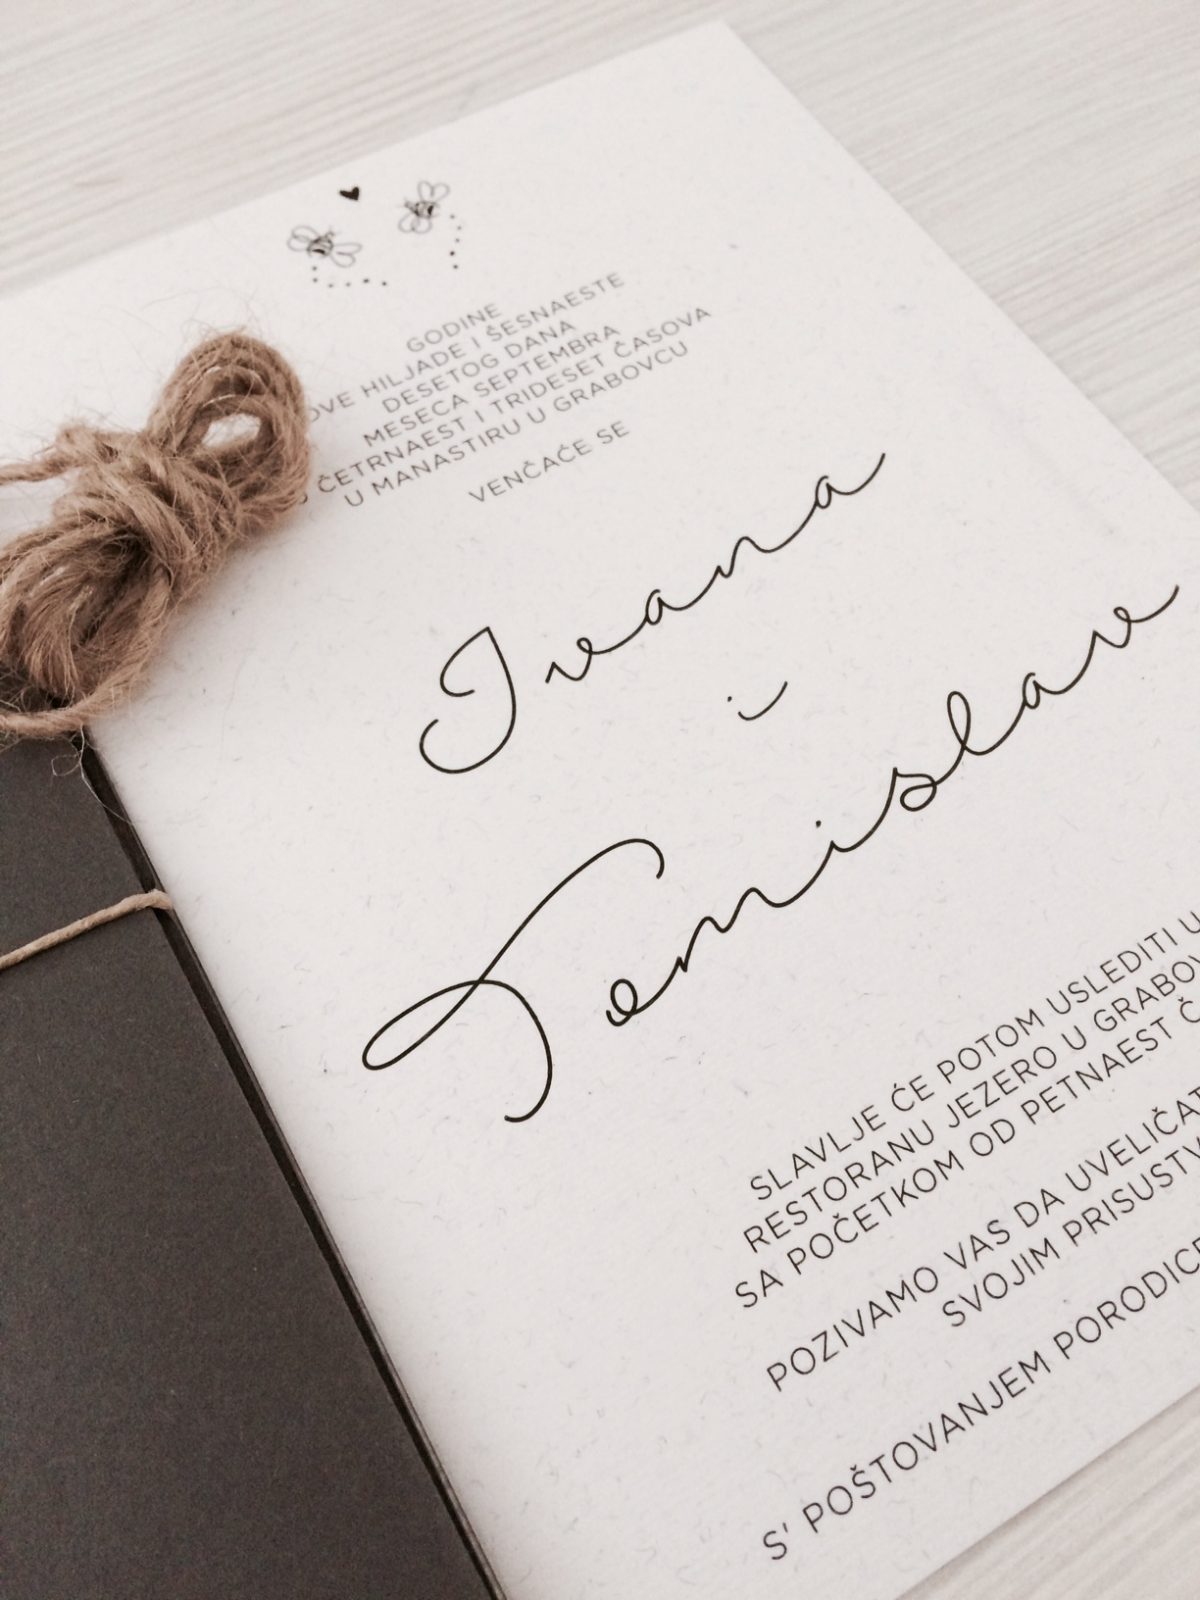 GODINE
HILJADE I ŠESNAESTE
DESETOG DANA
MESECA SEPTEMBRA
ČETRNAEST I TRIDESET ČASOVA
U MANASTIRU U GRABOVCU
VENČAĆE SE
Ivana
i
Tomislav
SLAVLJE ĆE POTOM USLEDITI U
RESTORANU JEZERO U
SA POČETKOM OD PETNAEST
POZIVAMO VAS DA
SVOJIM
S' POŠTOVANJEM